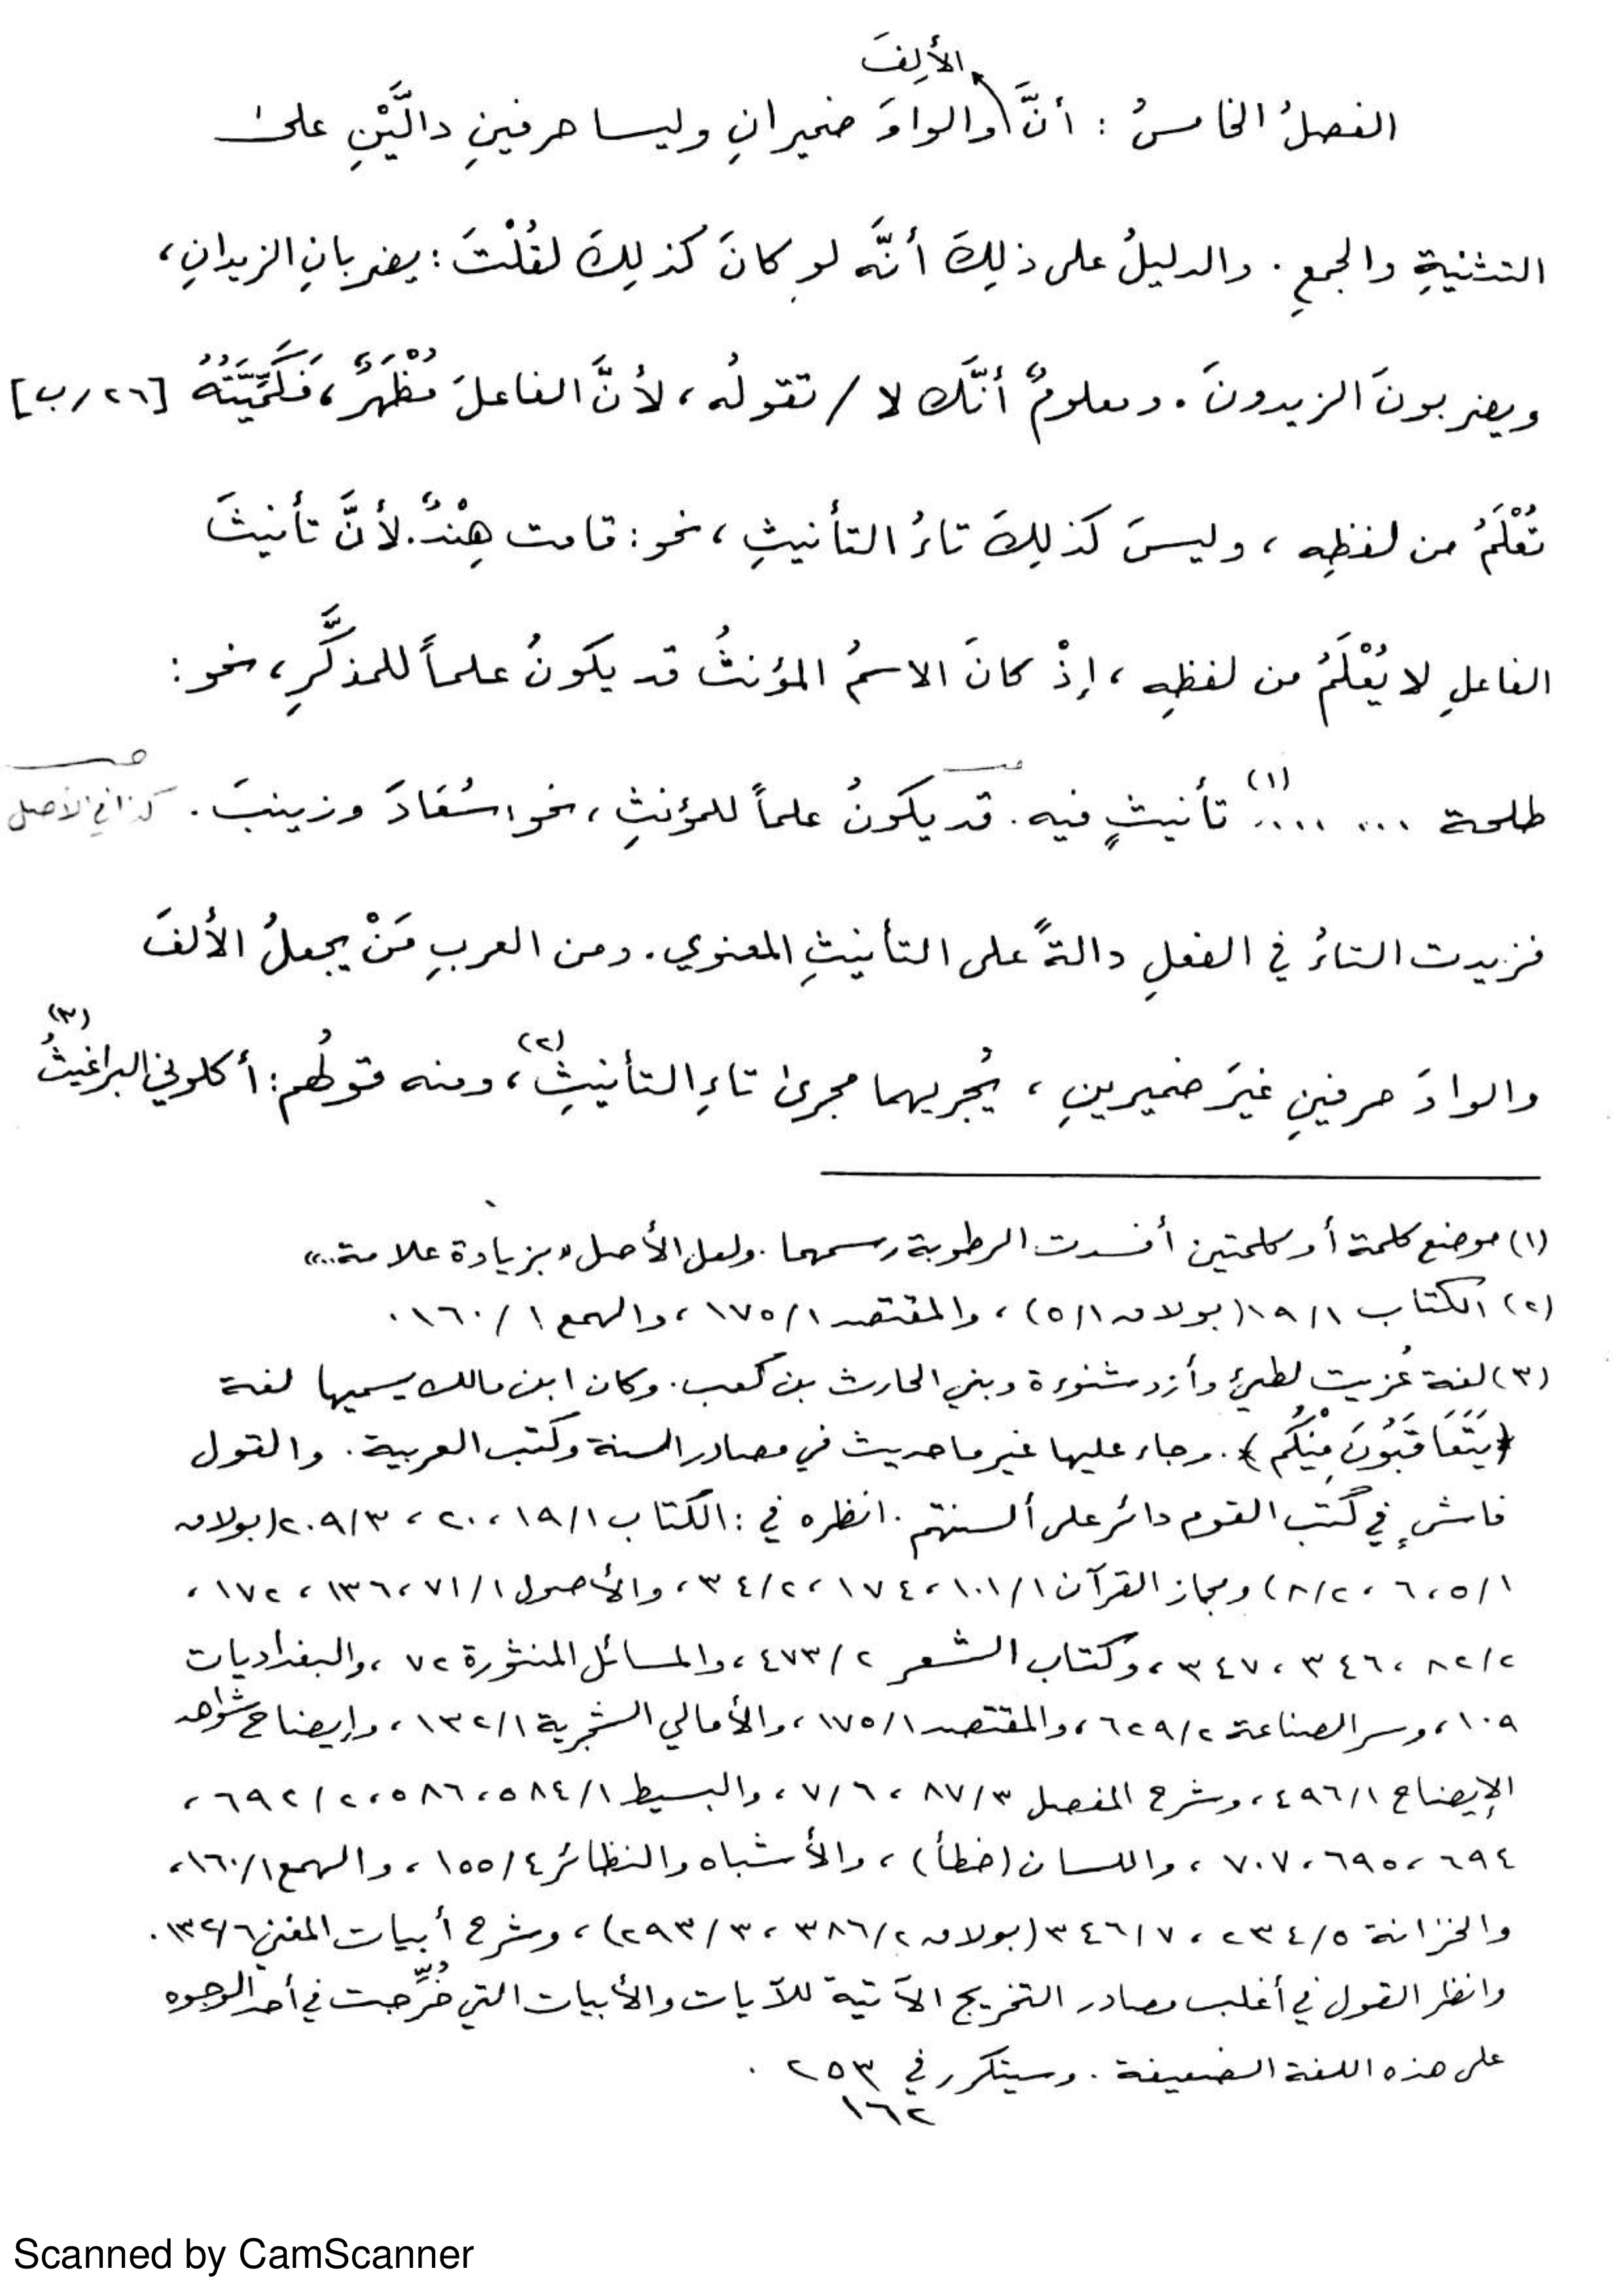 الألِفَ
الفصلُ الخامسُ : أنَّ والواوَ ضميرانِ وليسا حرفينِ دالَّيْنِ على
التثنيةِ والجمعِ . والدليلُ على ذلِكَ أنَّه لو كانَ كذلِكَ لقُلْتَ : يضربانِ الزيدانِ ،
ويضربونَ الزيدونَ . ومعلومٌ أنَّك لا / تقولُه ، لأنَّ الفاعلَ مُظْهَرٌ ، فَكَمِّيَّتُهُ [٢٦/ب]
تُعْلَمُ من لفظِه ، وليسَ كذلِكَ تاءُ التأنيثِ ، نحو : قامت هِنْدٌ . لأنَّ تأنيثَ
الفاعلِ لا يُعْلَمُ من لفظِه ، إذْ كانَ الاسمُ المؤنثُ قد يكونُ علماً للمذكَّرِ ، نحو :
طلحة ... ....(١) تأنيثٍ فيه . قد يكونُ علماً للمؤنثِ ، نحو سُعَادَ وزينبَ . كذا في الأصل
فزيدت التاءُ في الفعلِ دالةً على التأنيثِ المعنوي . ومن العربِ مَنْ يجعلُ الألفَ
والواوَ حرفينِ غيرَ ضميرينِ ، يُجريهما مجرى تاءِ التأنيثِ(٢) ، ومنه قولُهم : أكلوني البراغيثُ(٣)
(١) موضع كلمة أو كلمتين أفسدت الرطوبة رسمهما . ولعل الأصل « بزيادة علامة .. »
(٢) الكتاب ١٩/١ (بولاق ٥/١) ، والمقتصد ١٧٥/١ ، والهمع ١٦٠/١ .
(٣) لغة عُزيت لطيئ وأزد شنوءة وبني الحارث بن كعب . وكان ابن مالك يسميها لغة
﴿ يَتَعَاقَبُونَ فِيْكُم ﴾ . وجاء عليها غير ما حديث في مصادر السنة وكتب العربية . والقول
فاشٍ في كُتب القوم دائر على ألسنتهم . انظره في : الكتاب ١٩/١ ، ٢٠ ، ٢٠٩/٣ (بولاق
٥/١ ، ٦ ، ٨/٢) ومجاز القرآن ١٠١/١ ، ١٧٤ ، ٣٤/٢ ، والأصول ٧١/١ ، ١٣٦ ، ١٧٢ ،
٨٢/٢ ، ٣٤٦ ، ٣٤٧ ، وكتاب الشعر ٤٧٣/٢ ، والمسائل المنثورة ٧٢ ، والبغداديات
١٠٩ ، وسر الصناعة ٦٢٩/٢ ، والمقتصد ١٧٥/١ ، والأمالي الشجرية ١٣٢/١ ، وإيضاح شواهد
الإيضاح ٤٩٦/١ ، وشرح المفصل ٨٧/٣ ، ٧/٦ ، والبسيط ٥٨٤/١ ، ٥٨٦ ، ٦٩٢/٢ ،
٦٩٤ ، ٦٩٥ ، ٧٠٧ ، واللسان (خطأ) ، والأشباه والنظائر ١٥٥/٤ ، والهمع ١٦٠/١ ،
والخزانة ٢٣٤/٥ ، ٣٤٦/٧ (بولاق ٣٨٦/٢ ، ٢٩٣/٣) ، وشرح أبيات المغني ١٣٢/٦ .
وانظر القول في أغلب مصادر التخريج الآتية للآيات والأبيات التي خُرِّجت في أحد الوجوه
على هذه اللغة الضعيفة . وسيتكرر في ٢٥٣ .
١٦٢
Scanned by CamScanner